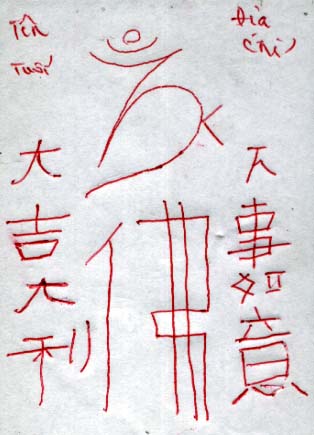 Tên
Tuổi
Địa
chỉ
大吉大利
佛
万事如意